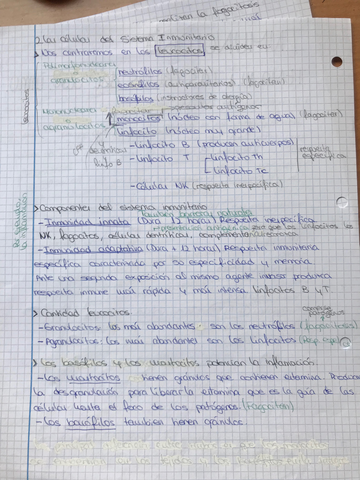 Las células del Sistema Inmunitario
> Nos centraremos en los leucocitos se dividen en
Polimorfonucleares
granulocitos
neutrófilos (fagocitan)
eosinófilos (antiparasitarios) (fagocitan)
basófilos (mediadores de alergia)
leucocitos
Mononucleares
agranulocitos
presentador antígenos
monocitos (núcleo con forma de agua) (fagocitan)
Linfocito (núcleo muy grande)
- Linfocito B (producen anticuerpos)
- Linfocito T
Linfocito Th
Linfocito Tc
respuesta específica
- Células NK (respuesta inespecífica)
> Componentes del sistema inmunitario
- Inmunidad innata (Dura 12 horas) Respuesta inespecífica
NK, fagocitos, células dendríticas, complemento
- Inmunidad adaptativa (Dura + 12 horas) Respuesta inmunitaria
específica caracterizada por su especificidad y memoria.
Ante una segunda exposición al mismo agente invasor producirá
respuesta inmune más rápida y más intensa. Linfocitos B y T
> Cantidad leucocitos
- Granulocitos: los más abundantes son los neutrófilos (fagocitosis)
- Agranulocitos: los más abundantes son los Linfocitos (Resp. esp.)
> Los basófilos y los mastocitos potencian la inflamación.
- Los mastocitos → tienen gránulos que contienen histamina. Produce
la desgranulación para liberar la histamina que es la guía de las
células hasta el foco de los patógenos. (Fagocitan)
- Los basófilos también tienen gránulos.